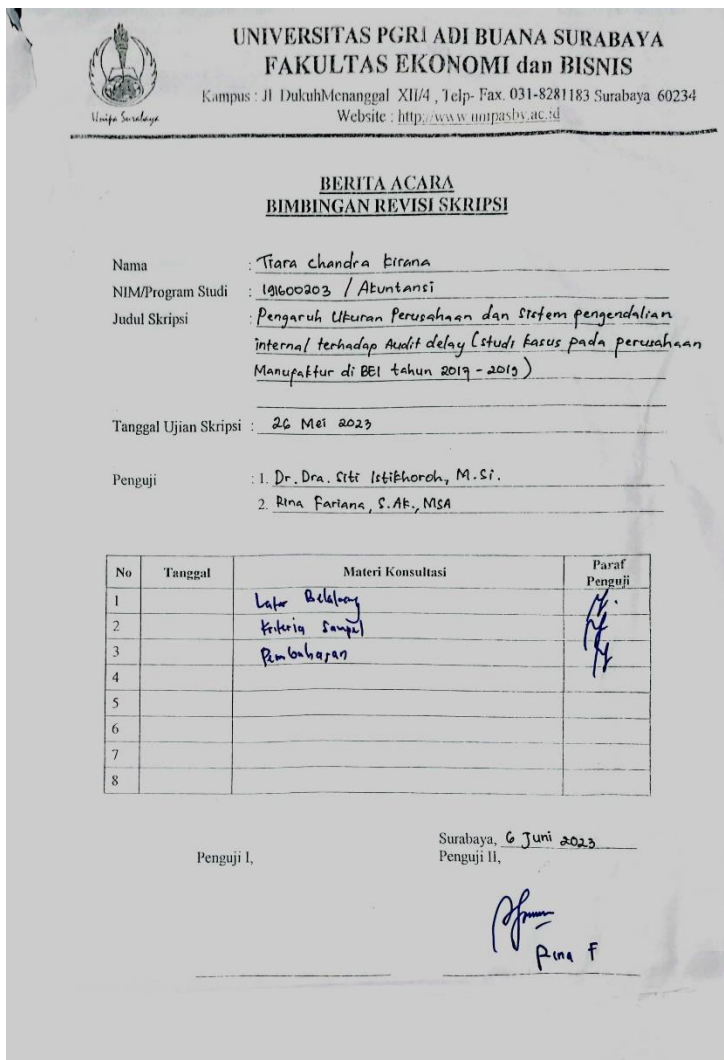 UNIVERSITAS PGRI ADI BUANA SURABAYA
FAKULTAS EKONOMI dan BISNIS
Kampus : Jl DukuhMenanggal XII/4 , Telp- Fax. 031-8281183 Surabaya 60234
Website : http://www.unipasby.ac.id
Unipa Surabaya
BERITA ACARA
BIMBINGAN REVISI SKRIPSI
Nama : Tiara Chandra kirana
NIM/Program Studi : 191600203 / Akuntansi
Judul Skripsi : Pengaruh Ukuran Perusahaan dan Sistem pengendalian
internal terhadap Audit delay (studi kasus pada perusahaan
Manufaktur di BEI tahun 2017 - 2019)
Tanggal Ujian Skripsi : 26 Mei 2023
Penguji : 1. Dr. Dra. Siti Istikhoroh, M.Si.
2. Rina Fariana, S.Ak., MSA
No Tanggal Materi Konsultasi Paraf Penguji
1 Latar Belakang
2 Kriteria Sampel
3 Pembahasan
4
5
6
7
8
Surabaya, 6 Juni 2023
Penguji I, Penguji II,
Rina F